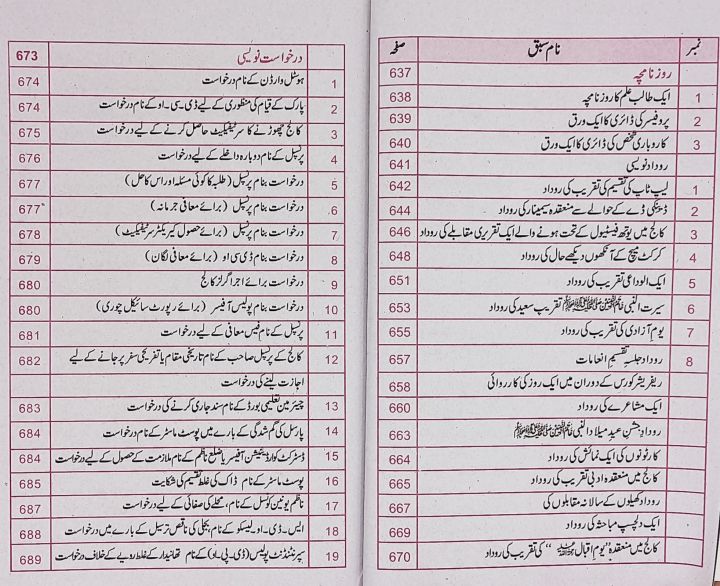 نمبر نام سبق صفحہ
روزنامچہ 637
1 ایک طالب علم کا روزنامچہ 638
2 پروفیسر کی ڈائری کا ایک ورق 639
3 کاروباری شخص کی ڈائری کا ایک ورق 640
روداد نویسی 641
1 لیپ ٹاپ کی تقسیم کی تقریب کی روداد 642
2 ڈینگی ڈے کے حوالے سے منعقدہ سیمینار کی روداد 644
3 کالج میں یوتھ فیسٹیول کے تحت ہونے والے ایک تقریری مقابلے کی روداد 646
4 کرکٹ میچ کے آنکھوں دیکھے حال کی روداد 648
5 ایک الوداعی تقریب کی روداد 651
6 سیرت النبی تقریب سعید کی روداد 653
7 یوم آزادی کی تقریب کی روداد 655
8 روداد جلسہ تقسیم انعامات 657
ریفریشر کورس کے دوران میں ایک روز کی کارروائی 658
ایک مشاعرے کی روداد 660
روداد جشن عید میلاد النبی 663
کارٹونوں کی ایک نمائش کی روداد 664
کالج میں منعقدہ ادبی تقریب کی روداد 665
روداد کھیلوں کے سالانہ مقابلوں کی 667
ایک دلچسپ مباحثے کی روداد 669
کالج میں منعقدہ "یوم اقبال" کی تقریب کی روداد 670
درخواست نویسی 673
1 ہوسٹل وارڈن کے نام درخواست 674
2 پارک کے قیام کی منظوری کے لیے ڈی۔سی۔او کے نام درخواست 674
3 کالج چھوڑنے کا سرٹیفکیٹ حاصل کرنے کے لیے درخواست 675
4 پرنسپل کے نام دوبارہ داخلے کے لیے درخواست 676
5 درخواست بنام پرنسپل (طلبہ کا کوئی مسئلہ اور اس کا حل) 677
6 درخواست بنام پرنسپل (برائے معافی جرمانہ) 677
7 درخواست بنام پرنسپل (برائے حصول کیریکٹر سرٹیفکیٹ) 678
8 درخواست بنام ڈی سی او (برائے معافی لگان) 679
9 درخواست برائے اجرا گرلز کالج 680
10 درخواست بنام پولیس آفیسر (برائے رپورٹ سائیکل چوری) 680
11 پرنسپل کے نام فیس معافی کے لیے درخواست 681
12 کالج کے پرنسپل صاحب کے نام تاریخی مقام یا تفریحی سفر پر جانے کے لیے 682
اجازت لینے کی درخواست
13 چیئرمین تعلیمی بورڈ کے نام سند جاری کرنے کی درخواست 683
14 پارسل کی گم شدگی کے بارے میں پوسٹ ماسٹر کے نام درخواست 684
15 ڈسٹرکٹ کوارڈینیشن آفیسر یا ضلع ناظم کے نام ملازمت کے حصول کے لیے درخواست 684
16 پوسٹ ماسٹر کے نام ڈاک کی غلط تقسیم کی شکایت 685
17 ناظم یونین کونسل کے نام، محلے کی صفائی کے لیے درخواست 687
18 ایس۔ڈی۔او لیسکو کے نام بجلی کی ناقص ترسیل کے بارے میں درخواست 688
19 سپرنٹنڈنٹ پولیس (ڈی۔پی۔او) کے نام تھانیدار کے غلط رویے کے خلاف درخواست 689